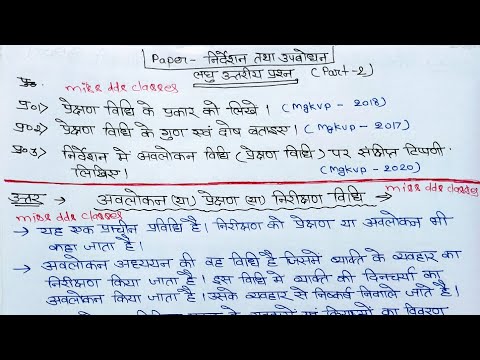 Paper - निर्देशन तथा उपबोधन
लघु उत्तरीय प्रश्न (Part-2)
miss dds classes
प्र०1) प्रेक्षण विधि के प्रकार को लिखे। (Mgkvp - 2018)
प्र०2) प्रेक्षण विधि के गुण एवं दोष बताइए। (Mgkvp - 2017)
प्र०3) निर्देशन में अवलोकन विधि (प्रेक्षण विधि) पर संक्षिप्त टिप्पणी
लिखिए। (Mgkvp - 2020)
उत्तर → अवलोकन (या) प्रेक्षण (या) निरीक्षण विधि → miss dds classes
miss dds classes
→ यह एक प्राचीन प्रविधि है। निरीक्षण को प्रेक्षण या अवलोकन भी
कहा जाता है।
→ अवलोकन अध्ययन की वह विधि है जिसमे व्यक्ति के व्यवहार का
निरीक्षण किया जाता है। इस विधि मे व्यक्ति की दिनचर्या का
अवलोकन किया जाता है। उसके व्यवहार से निष्कर्ष निकाले जाते है।
का विवरण